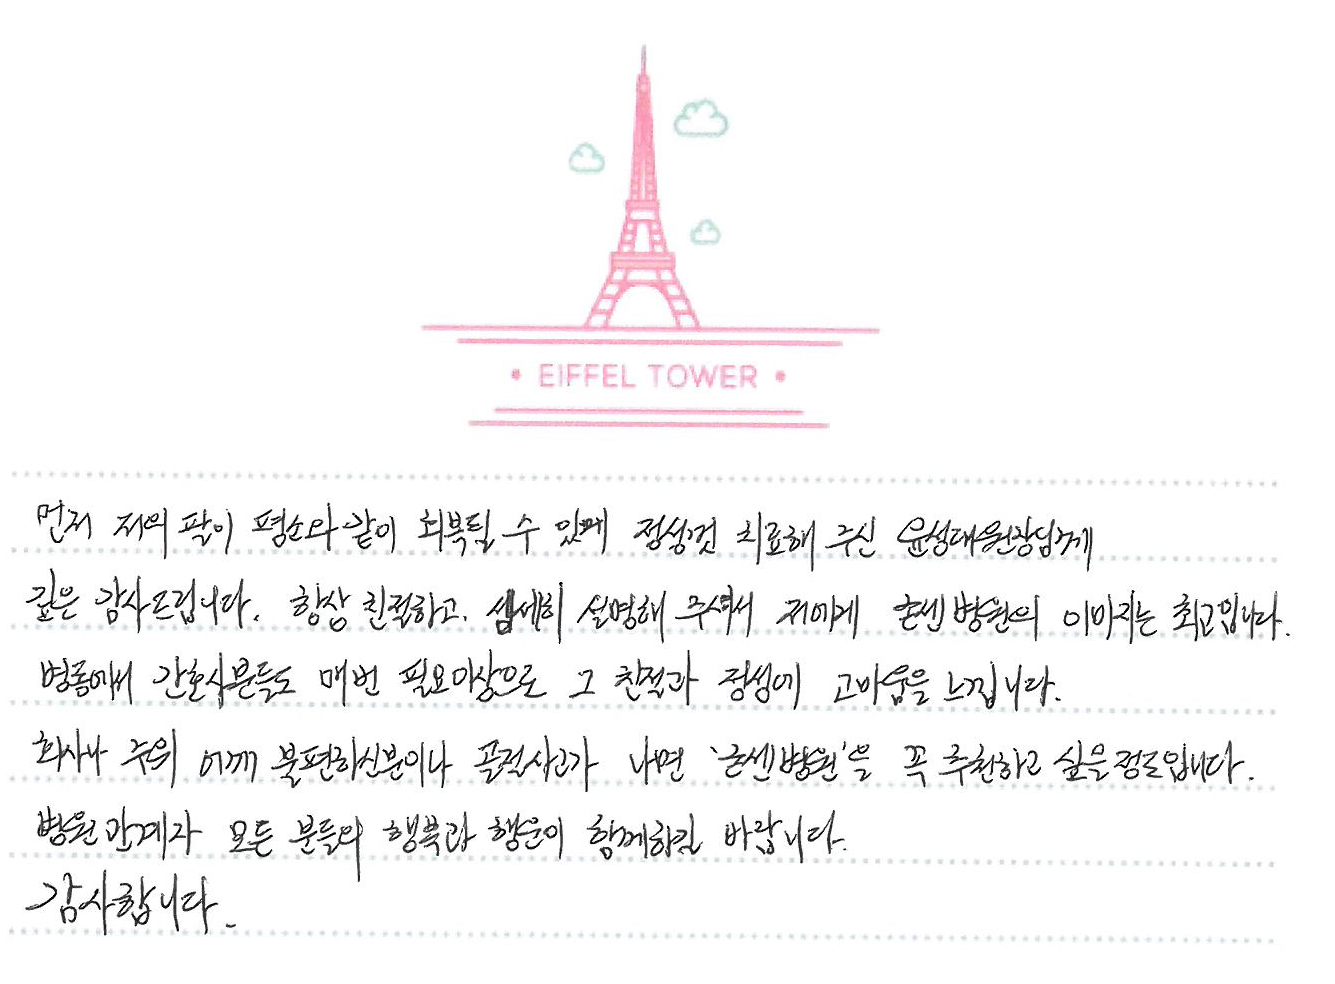 EIFFEL TOWER
먼저 저의 팔이 평소와 같이 회복될 수 있게 정성껏 치료해 주신 윤성대원장님께
깊은 감사드립니다. 항상 친절하고, 섬세히 설명해 주셔서 저에게 손센병원의 이미지는 최고입니다.
병동에서 간호사분들도 매번 필요이상으로 그 친절과 정성에 고마움을 느낍니다.
회사나 주위 어깨 불편하신분이나 골절사고가 나면 '손센병원'을 꼭 추천하고 싶을정도입니다.
병원관계자 모든 분들의 행복과 행운이 함께하길 바랍니다.
감사합니다.